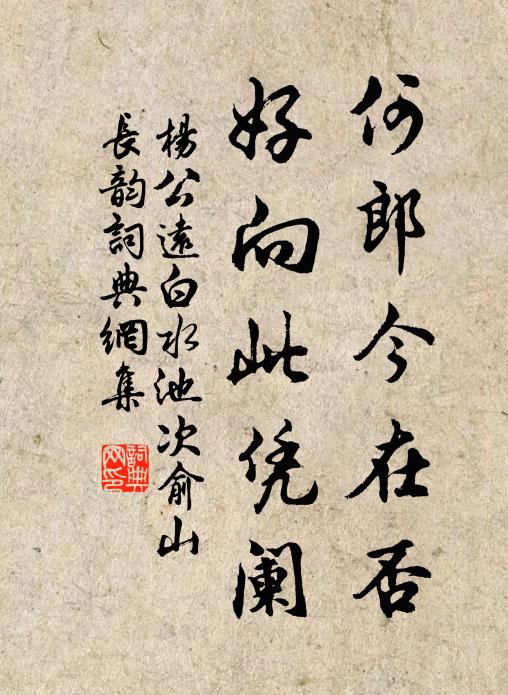 何郎今在否
好向此凭阑
楊公遠白水池次俞山
長韵詞典網集
詞典
网印